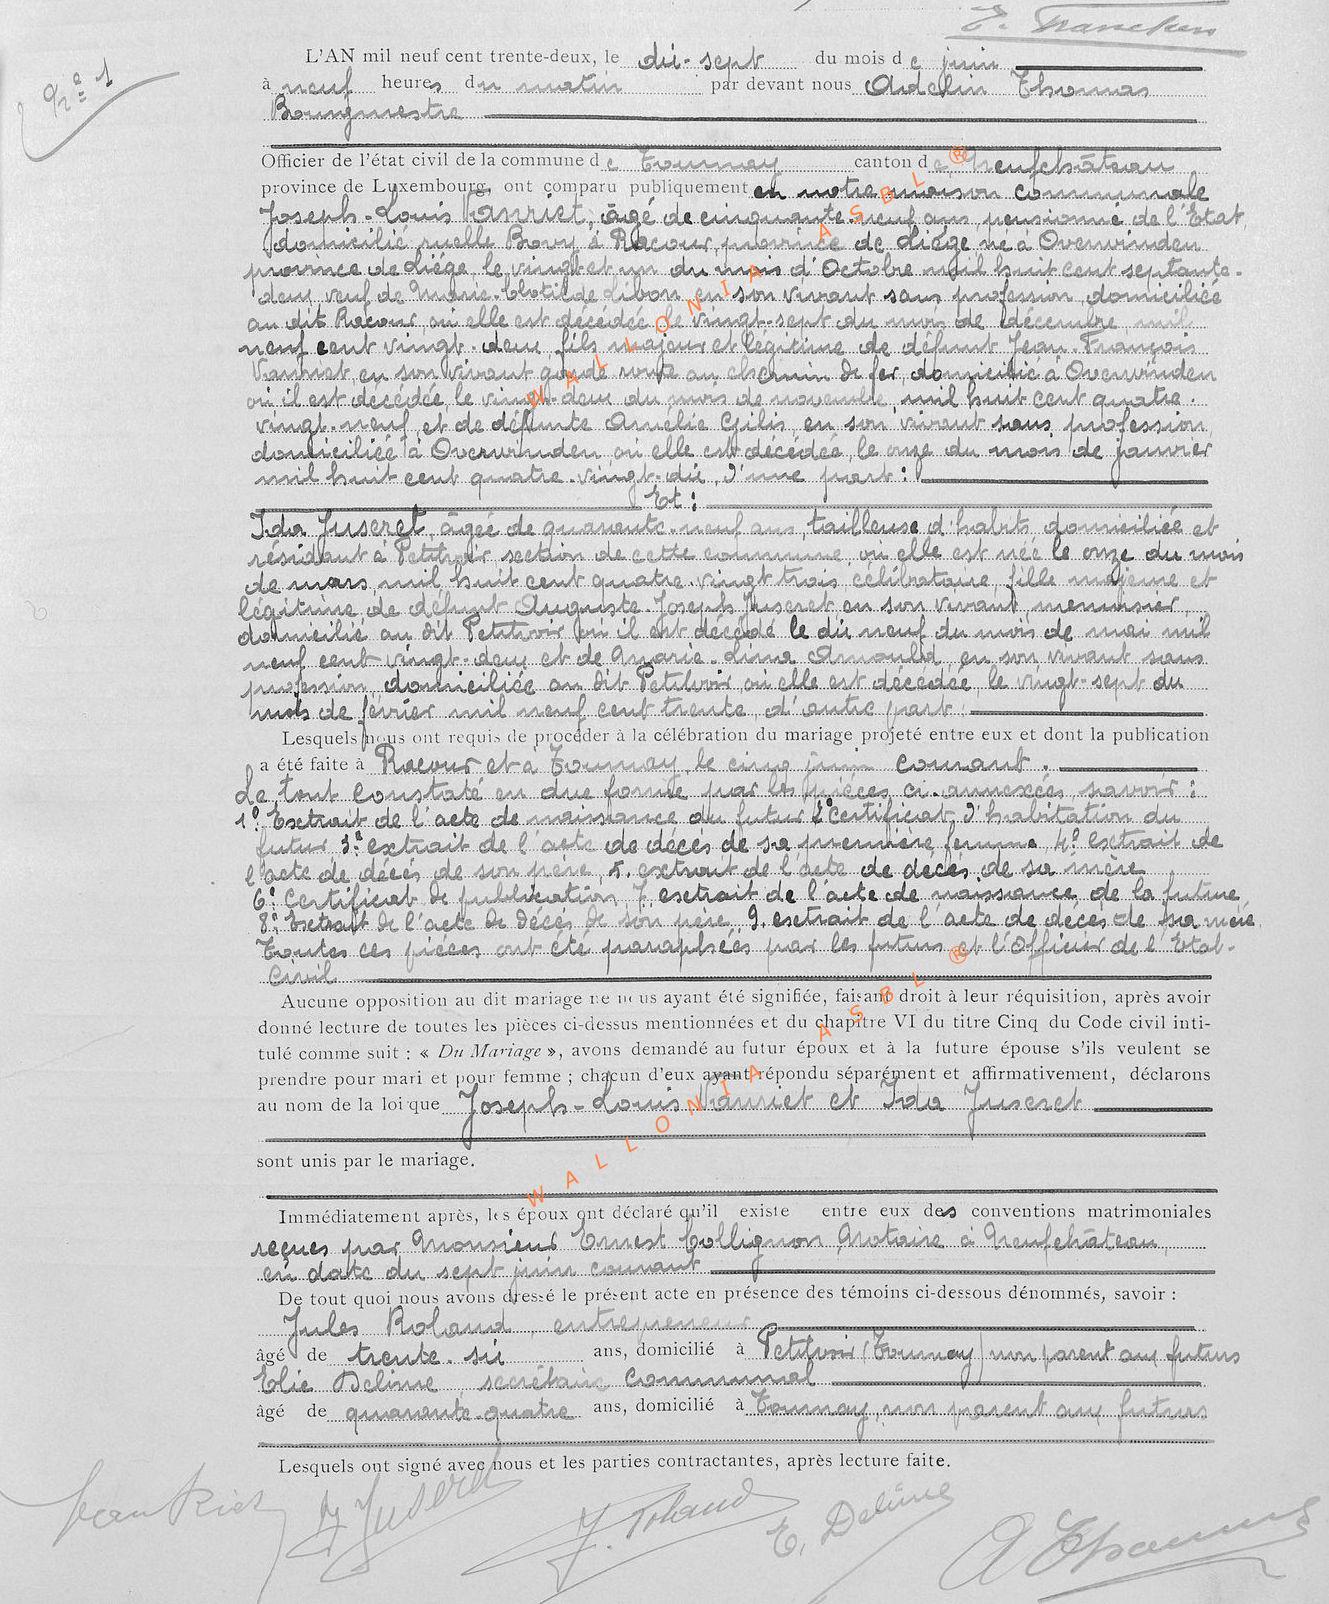 E. Francken
N° 1
L'AN mil neuf cent trente-deux, le dix-sept du mois de juin
à neuf heures du matin par devant nous Adelin Thomas
Bourgmestre
Officier de l'état civil de la commune de Tournay canton de Neufchâteau
province de Luxembourg, ont comparu publiquement en notre maison communale
Joseph-Louis Vanriet, âgé de cinquante-neuf ans, pensionné de l'Etat,
domicilié ruelle Bovy à Racour, province de Liége né à Overwinden
province de Liége, le vingt et un du mois d'Octobre mil huit cent septante-
deux, veuf de Marie-Clotilde Libon, en son vivant sans profession, domiciliée
au dit Racour, où elle est décédée le vingt-sept du mois de décembre mil
neuf cent vingt-deux, fils majeur et légitime de défunt Jean-François
Vanriet, en son vivant garde route au chemin de fer, domicilié à Overwinden
où il est décédée, le vingt-deux du mois de novembre mil huit cent quatre-
vingt-neuf, et de défunte Amélie Gilis, en son vivant sans profession,
domiciliée à Overwinden, où elle est décédée, le onze du mois de janvier
mil huit cent quatre-vingt-dix, d'une part :
Et :
Ida Juseret, âgée de quarante-neuf ans, tailleuse d'habit, domiciliée et
résidant à Petitvoir section de cette commune, où elle est née le onze du mois
de mars, mil huit cent quatre vingt trois célibataire, fille majeure et
légitime de défunt Auguste-Joseph Juseret en son vivant menuisier,
domicilié au dit Petitvoir où il est décédé le dix neuf du mois de mai mil
neuf cent vingt-deux et de Marie-Lina Arnould, en son vivant sans
profession, domiciliée au dit Petitvoir où elle est décédée, le vingt-sept du
mois de février mil neuf cent trente, d'autre part.
Lesquels nous ont requis de procéder à la célébration du mariage projeté entre eux et dont la publication
a été faite à Racour et à Tournay, le cinq juin courant.
Le tout constaté en due forme par les pièces ci-annexées, savoir :
1° Extrait de l'acte de naissance du futur 2° Certificat d'habitation du
futur 3° extrait de l'acte de décès de sa première femme 4° extrait de
l'acte de décés de son père, 5. extrait de l'acte de décés de sa mère
6° Certificat de publication, 7. extrait de l'acte de naissance de la future,
8° Extrait de l'acte de décés de son père, 9. extrait de l'acte de décés de sa mère.
Toutes ces pièces ont été paraphées par les futurs et l'Officier de l'Etat-
Civil
Aucune opposition au dit mariage ne nous ayant été signifiée, faisant droit à leur réquisition, après avoir
donné lecture de toutes les pièces ci-dessus mentionnées et du chapitre VI du titre Cinq du Code civil inti-
tulé comme suit : « Du Mariage », avons demandé au futur époux et à la future épouse s'ils veulent se
prendre pour mari et pour femme ; chacun d'eux ayant répondu séparément et affirmativement, déclarons
au nom de la loi que Joseph-Louis Vanriet et Ida Juseret
sont unis par le mariage.
Immédiatement après, les époux ont déclaré qu'il existe entre eux des conventions matrimoniales
reçues par Monsieur Ernest Collignon, Notaire à Neufchâteau,
en date du sept juin courant
De tout quoi nous avons dressé le présent acte en présence des témoins ci-dessous dénommés, savoir :
Jules Roland, entrepreneur
âgé de trente-six ans, domicilié à Petitvoir (Tournay) non parent aux futurs
Elie Delime, secrétaire communal
âgé de quarante-quatre ans, domicilié à Tournay, non parent aux futurs
Lesquels ont signé avec nous et les parties contractantes, après lecture faite.
I. Juseret
J. Roland
E. Delime
A Thomas
WALLONIA ASBL ®
WALLONIA ASBL ®